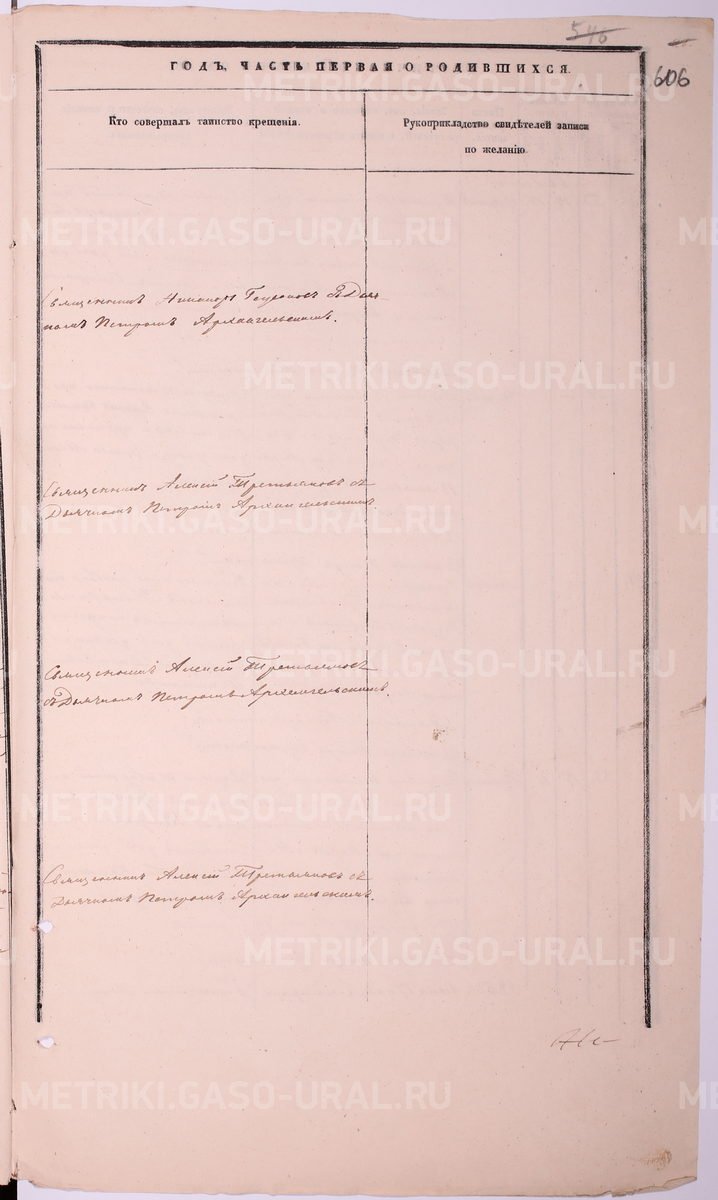 546
606
ГОДЪ, ЧАСТЬ ПЕРВАЯ О РОДИВШИХСЯ.
Кто совершалъ таинство крещенія.
Рукоприкладство свидѣтелей записи
по желанію.
Священникъ Никаноръ съ Дьяч-
комъ Петромъ Архангельскимъ.
Священникъ Алексій Третьяковъ съ
Дьячкомъ Петромъ Архангельскимъ.
Священникъ Алексій Третьяковъ
съ Дьячкомъ Петромъ Архангельскимъ.
Священникъ Алексій Третьяковъ съ
Дьячкомъ Петромъ Архангельскимъ.
METRIKI.GASO-URAL.RU